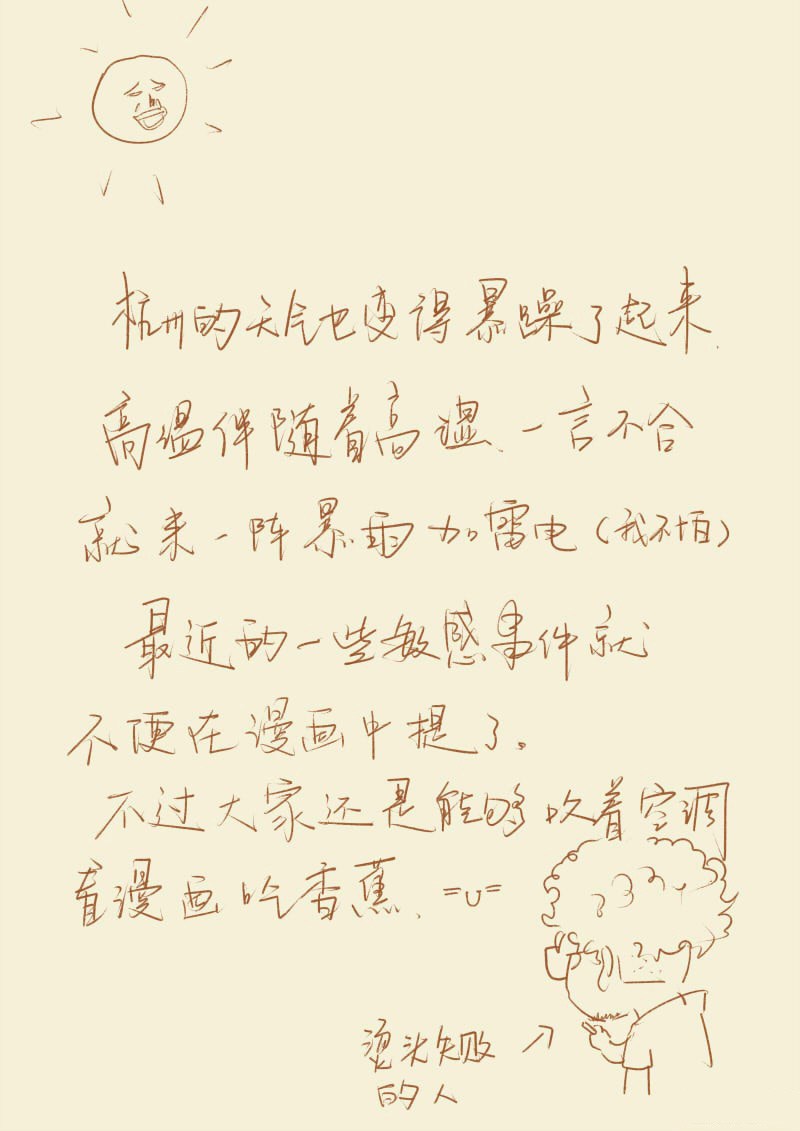 杭州的天气也变得暴躁了起来.
高温伴随着高湿、一言不合
就来一阵暴雨加雷电(我不怕)
最近的一些敏感事件就
不便在漫画中提了。
不过大家还是能够吹着空调
看漫画吃香蕉、=u=
烫头失败
的人